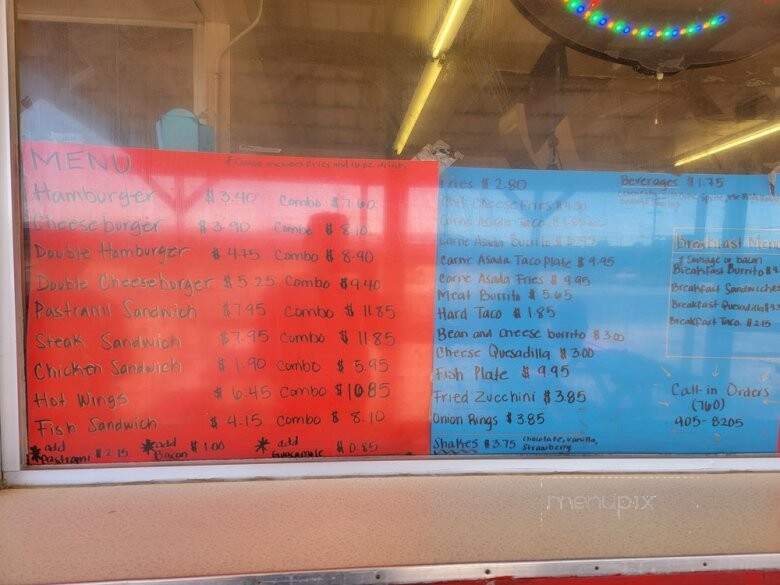 MENU
Hamburger $3.40 Combo $7.60
Cheeseburger $3.90 Combo $8.10
Double Hamburger $4.75 Combo $8.90
Double Cheeseburger $5.25 Combo $9.40
Pastrami Sandwich $7.95 Combo $11.85
Steak Sandwich $7.95 Combo $11.85
Chicken Sandwich $1.90 Combo $5.95
Hot Wings $6.45 Combo $10.85
Fish Sandwich $4.15 Combo $8.10
*add Pastrami $2.15 *add Bacon $1.00 *add Guacamole $0.85
Fries $2.80
Chili Cheese Fries
Carne Asada Taco
Carne Asada Burrito
Carne Asada Taco Plate $9.95
Carne Asada Fries $9.95
Meat Burrito $5.65
Hard Taco $1.85
Bean and cheese burrito $3.00
Cheese Quesadilla $3.00
Fish Plate $9.95
Fried Zucchini $3.85
Onion Rings $3.85
Shakes $3.75 chocolate, vanilla, strawberry
Beverages $1.75
Breakfast Menu
sausage or bacon
Breakfast Burrito
Breakfast Sandwich
Breakfast Quesadilla
Breakfast Taco $2.15
Call-in Orders
(760)
905-8205
menupix